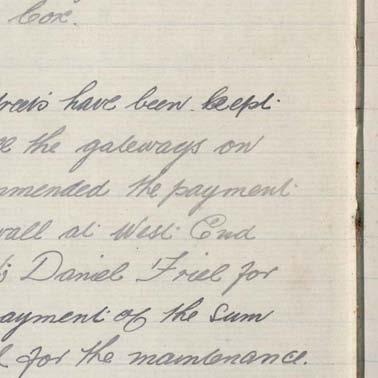 Cox.
have been kept
the gateways on
the payment
wall at West End
Daniel Friel for
payment of the sum
for the maintenance.